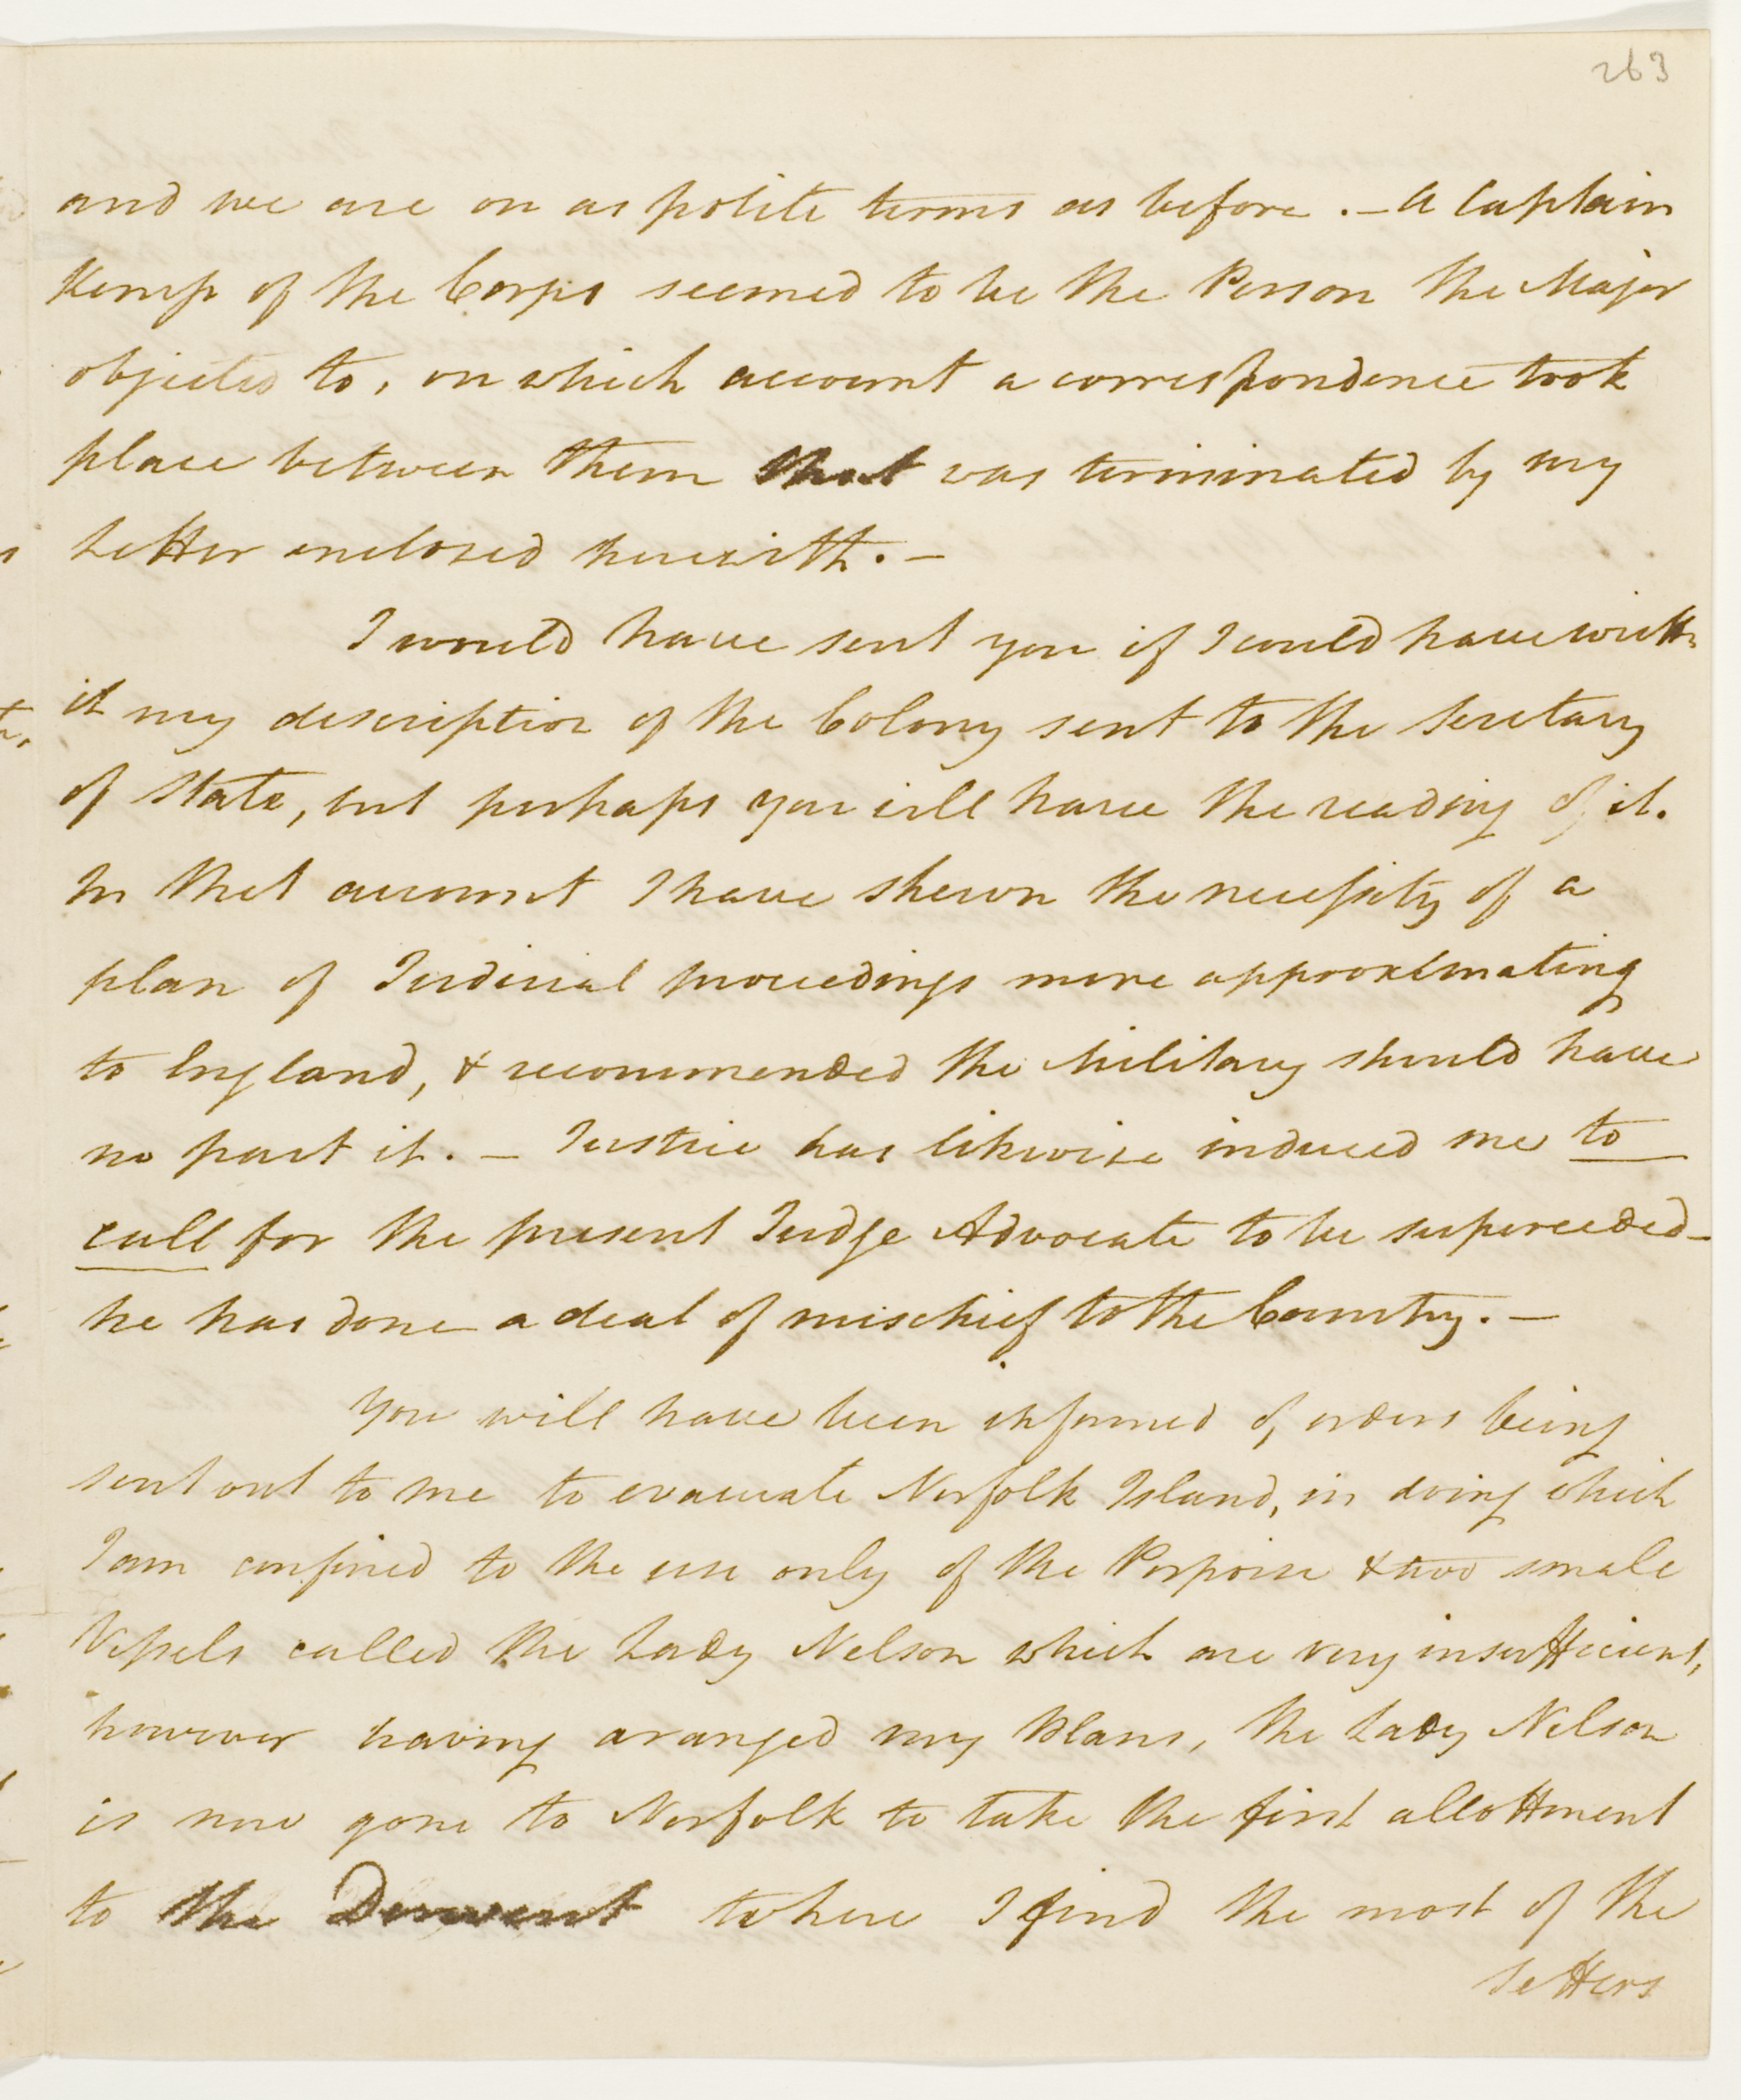 263
and we are on as polite terms as before. — A Captain
Kemp of the Corps seemed to be the Person the Major
objected to, on which account a correspondence took
place between them that was terminated by my
Letter enclosed herewith. —
I would have sent you if I could have writtn
it my description of the Colony sent to the Secretary
of State, but perhaps you will have the reading of it.
In that account I have shewn the necessity of a
plan of Judicial proceedings more approximating
to England, & recommended the Military should have
no part it. — Justice has likewise induced me to
call for the present Judge Advocate to be superceeded —
he has done a deal of mischief to the Country. —
You will have been informed of orders being
sent out to me to evacuate Norfolk Island, in doing which
I am confined to the use only of the Porpoise & two small
Vessels called the Lady Nelson which are very insufficient,
however having aranged my Plans, the Lady Nelson
is now gone to Norfolk to take the first allottment
to the Derwent where I find the most of the
Settlers